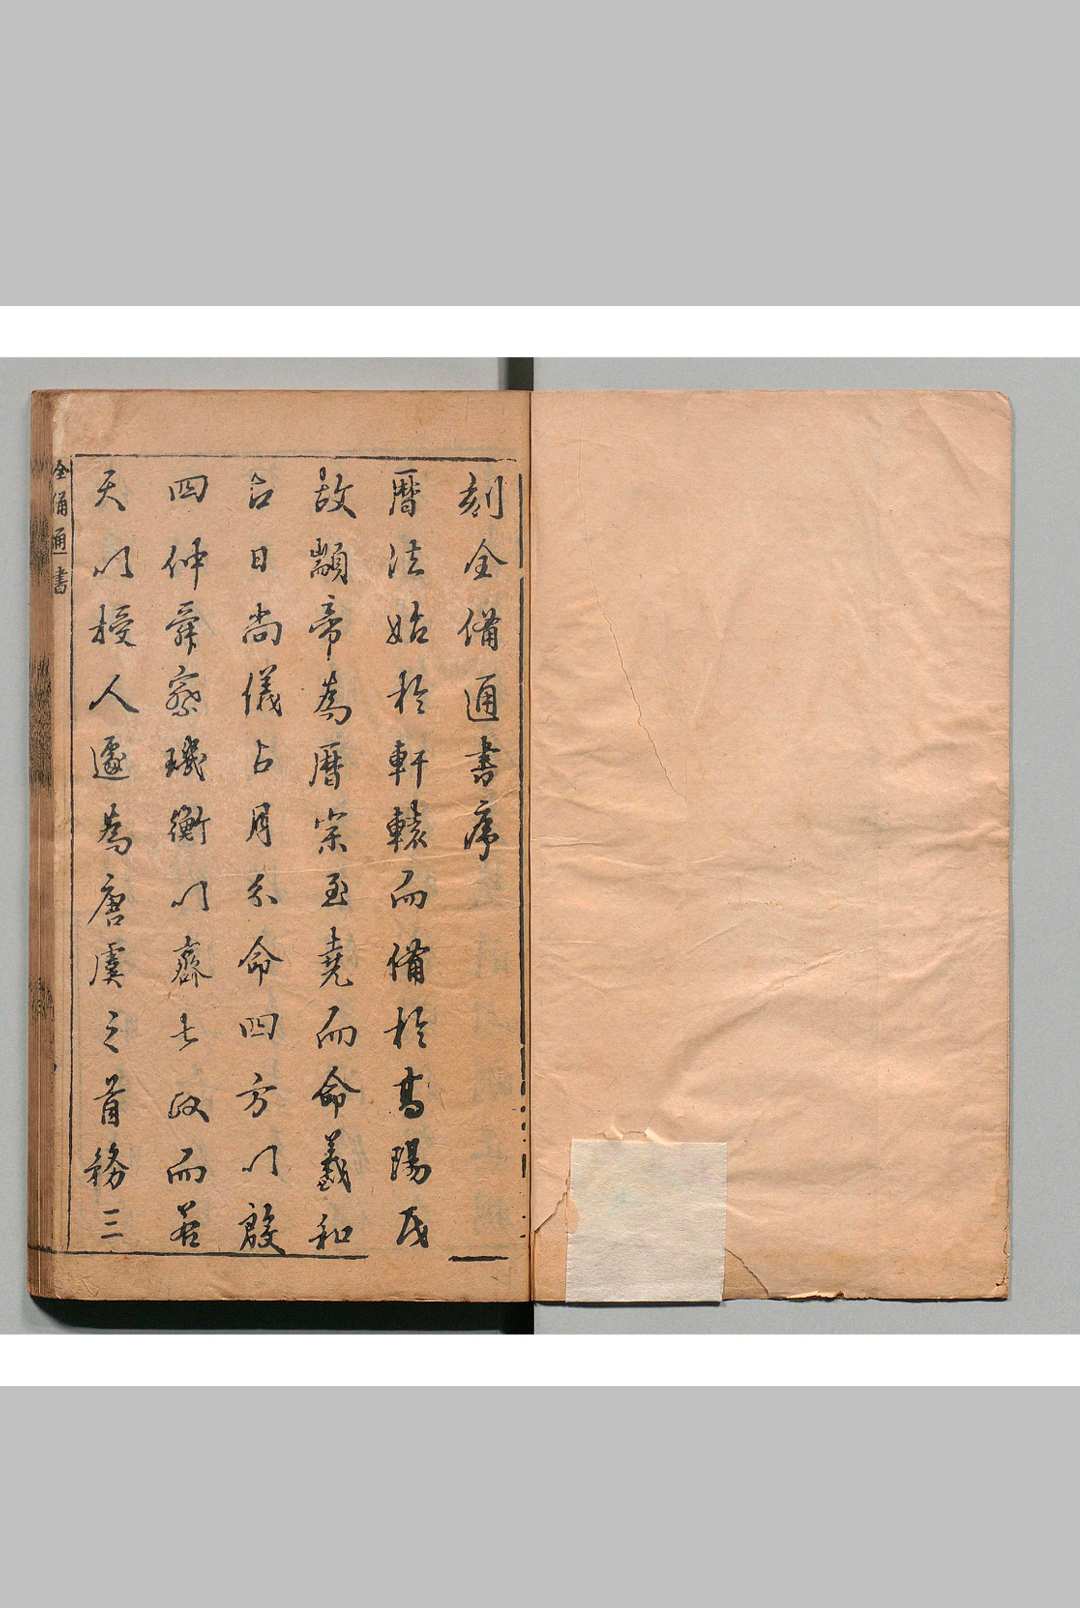 刻全備通書序
曆法始於軒轅而備於高陽氏
故顓帝為曆宗至堯而命羲和
占日尚儀占月分命四方以殷
四仲舜察璣衡以齊七政而若
天以授人遽為唐虞之首務三
全備通書